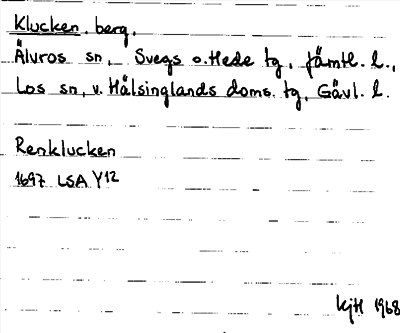 Klucken, berg.
Älvros sn, Svegs o. Hede tg, Jämtl. l.,
Los sn, v. Hälsinglands doms. tg, Gävl. l.
Renklucken
1697 LSA Y12
KjH 1968